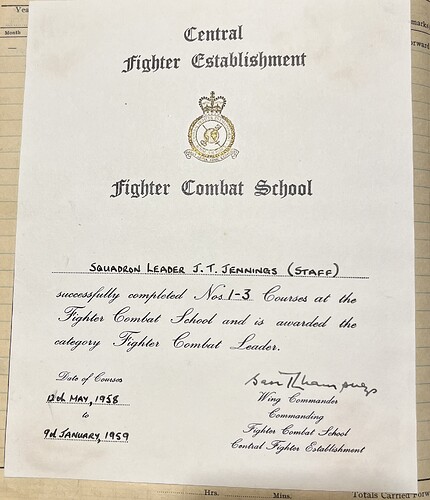 Central
Fighter Establishment
Fighter Combat School
SQUADRON LEADER J. T. JENNINGS (STAFF)
successfully completed Nos. 1-3 Courses at the
Fighter Combat School and is awarded the
category Fighter Combat Leader.
Date of Courses
12th MAY, 1958
to
9th JANUARY, 1959
Wing Commander
Commanding
Fighter Combat School
Central Fighter Establishment
Month
Hrs.
Mins.
Totals Carried